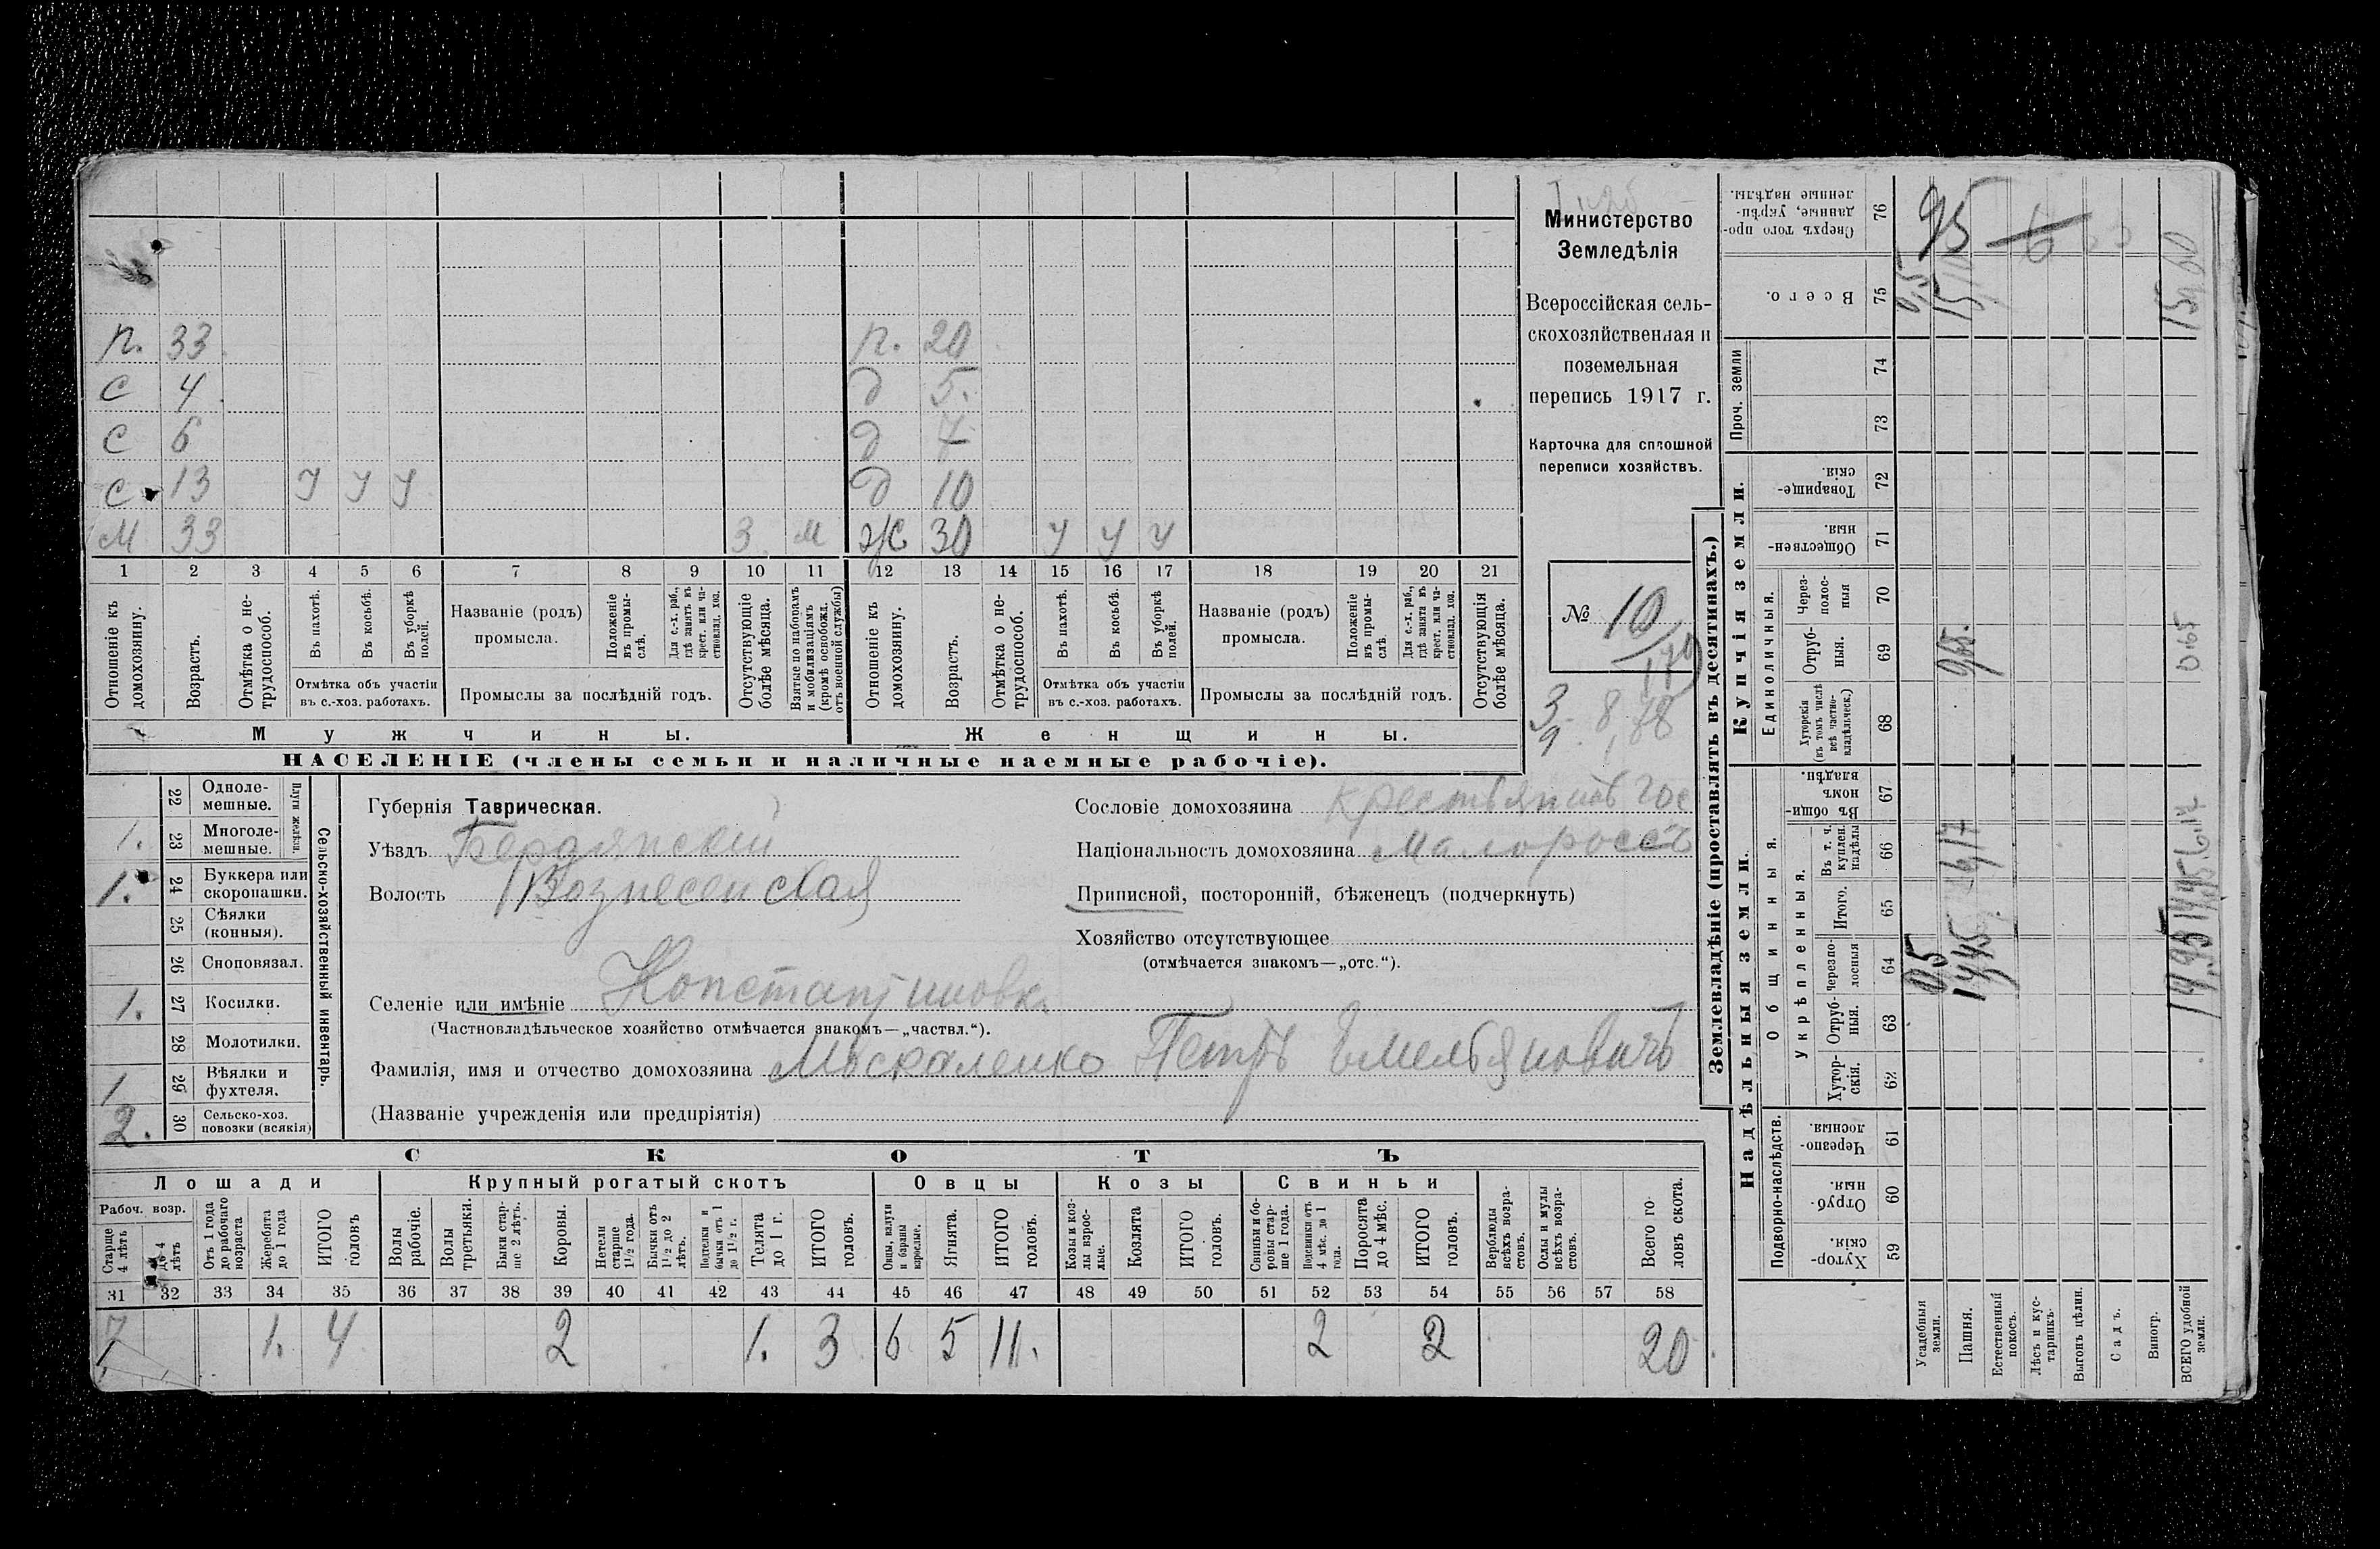 Министерство
Земледѣлія
Всероссійская сель-
скохозяйственная и
поземельная
перепись 1917 г.
Карточка для сплошной
переписи хозяйствъ.
№ 10
п. 33 п. 20
с 4 д 5.
с 6 д 7
с 13 у у у д 10
м 33 3. м ж 30 у у у
1 2 3 4 5 6 7 8 9 10 11 12 13 14 15 16 17 18 19 20 21
Отношеніе къ домохозяину.
Возрастъ.
Отмѣтка о не-трудоспособ.
Въ пахотѣ.
Въ косьбѣ.
Въ уборкѣ полей.
Отмѣтка объ участіи въ с.-хоз. работахъ.
Названіе (родъ) промысла.
Положеніе въ промы-слѣ.
Для с.-х. раб., гдѣ занятъ въ крест. или ча-стновлад. хоз.
Промыслы за послѣдній годъ.
Отсутствующіе болѣе мѣсяца.
Взятые по наборамъ и мобилизаціямъ (кромѣ освобожд. отъ военной службы)
Отношеніе къ домохозяину.
Возрастъ.
Отмѣтка о не-трудоспособ.
Въ пахотѣ.
Въ косьбѣ.
Въ уборкѣ полей.
Отмѣтка объ участіи въ с.-хоз. работахъ.
Названіе (родъ) промысла.
Положеніе въ промы-слѣ.
Для с.-х. раб., гдѣ занята въ крест. или ча-стновлад. хоз.
Промыслы за послѣдній годъ.
Отсутствующія болѣе мѣсяца.
Мужчины. Женщины.
НАСЕЛЕНІЕ (члены семьи и наличные наемные рабочіе).
Сельско-хозяйственный инвентарь.
Плуги желѣзн.
22 Одноле-мешные.
1. 23 Многоле-мешные.
1. 24 Буккера или скоропашки.
25 Сѣялки (конныя).
26 Сноповязал.
1. 27 Косилки.
28 Молотилки.
1 29 Вѣялки и фухтеля.
2. 30 Сельско-хоз. повозки (всякія)
Губернія Таврическая.
Уѣздъ Бердянскій
Волость Вознесенская
Селеніе или имѣніе Константиновка
(Частновладѣльческое хозяйство отмѣчается знакомъ—„частвл.“).
Фамилія, имя и отчество домохозяина Москаленко Петръ Емельяновичъ
(Названіе учрежденія или предпріятія)
Сословіе домохозяина крестьянинъ гос
Національность домохозяина малороссъ
Приписной, посторонній, бѣженецъ (подчеркнуть)
Хозяйство отсутствующее
(отмѣчается знакомъ—„отс.“).
СКОТЪ
Лошади Крупный рогатый скотъ Овцы Козы Свиньи
Рабоч. возр.
Старше 4 лѣтъ
до 4 лѣтъ
Отъ 1 года до рабочаго возраста
Жеребята до 1 года
ИТОГО головъ
Волы рабочіе.
Волы третьяки.
Быки стар-ше 2 лѣтъ.
Коровы.
Нетели старше 1½ года.
Бычки отъ 1½ до 2 лѣтъ.
Подтелки и бычки отъ 1 до 1½ г.
Телята до 1 г.
ИТОГО головъ.
Овцы, валухи и бараны взрослые.
Ягнята.
ИТОГО головъ.
Козы и коз-лы взрос-лые.
Козлята
ИТОГО головъ.
Свиньи и бо-ровы стар-ше 1 года.
Подсвинки отъ 4 мѣс. до 1 года.
Поросята до 4 мѣс.
ИТОГО головъ.
Верблюды всѣхъ возра-стовъ.
Ослы и мулы всѣхъ возра-стовъ.
Всего го-ловъ скота.
31 32 33 34 35 36 37 38 39 40 41 42 43 44 45 46 47 48 49 50 51 52 53 54 55 56 57 58
1. 4 2 1. 3 6 5 11. 2 2 20
Землевладѣніе (проставлять въ десятинахъ.)
Надѣльныя земли. Купчія земли. Проч. земли
Подворно-наслѣдств.
Общинныя.
Укрѣпленныя.
Единоличныя.
59 Хутор-скія.
60 Отруб-ныя.
61 Черезпо-лосныя.
62 Хутор-скія.
63 Отруб-ныя.
64 Черезпо-лосныя
65 Итого.
66 Въ т. ч. куплен. надѣлы
67 Въ общи-номъ владѣн.
68 Хуторскія (въ томъ числѣ всѣ частно-владѣльческ.)
69 Отруб-ныя.
70 Через-полос-ныя
71 Обществен-ныя.
72 Товарище-скія.
73
74
75 Всего.
76 Сверхъ того про-данные, укрѣп-ленные надѣлы.
Усадебныя земли.
Пашня.
Естественный покосъ.
Лѣсъ и кус-тарникъ.
Выгонъ цѣлин.
Садъ.
Виногр.
ВСЕГО удобной земли.
0,5
14,45
14,95
0.65
15,60